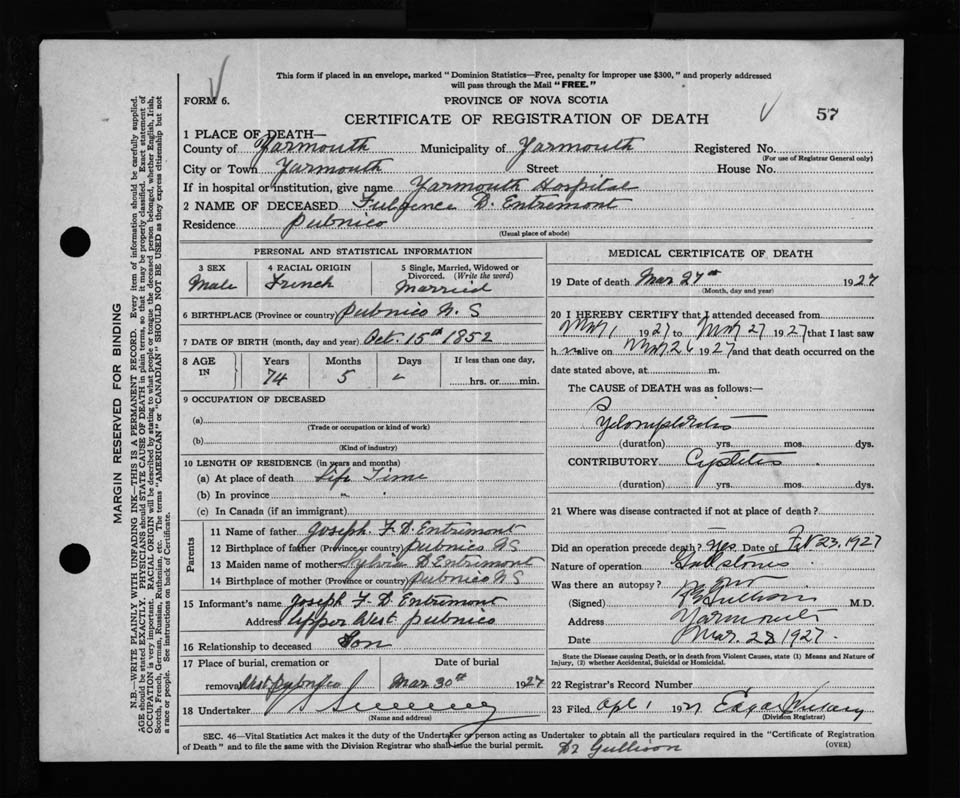 This form if placed in an envelope, marked "Dominion Statistics—Free, penalty for improper use $300," and properly addressed
will pass through the Mail "FREE."
FORM 6.
PROVINCE OF NOVA SCOTIA
CERTIFICATE OF REGISTRATION OF DEATH
57
1 PLACE OF DEATH—
County of Yarmouth Municipality of Yarmouth Registered No.
(For use of Registrar General only)
City or Town Yarmouth Street House No.
If in hospital or institution, give name Yarmouth Hospital
2 NAME OF DECEASED Fulgence D. Entremont
Residence Pubnico
(Usual place of abode)
PERSONAL AND STATISTICAL INFORMATION
3 SEX 4 RACIAL ORIGIN 5 Single, Married, Widowed or
Divorced. (Write the word)
Male French Married
6 BIRTHPLACE (Province or country) Pubnico N. S
7 DATE OF BIRTH (month, day and year) Oct. 15th 1852
8 AGE IN Years Months Days If less than one day,
74 5 hrs. or min.
9 OCCUPATION OF DECEASED
(a)
(Trade or occupation or kind of work)
(b)
(Kind of industry)
10 LENGTH OF RESIDENCE (in years and months)
(a) At place of death Life Time
(b) In province "
(c) In Canada (if an immigrant)
Parents
11 Name of father Joseph. F. D. Entremont
12 Birthplace of father (Province or country) Pubnico NS
13 Maiden name of mother Sylvie D Entremont
14 Birthplace of mother (Province or country) Pubnico NS
15 Informant's name Joseph F. D. Entremont
Address Upper West Pubnico
16 Relationship to deceased Son
17 Place of burial, cremation or Date of burial
removal West Pubnico Mar 30th 1927
18 Undertaker Sweeney
(Name and address)
MEDICAL CERTIFICATE OF DEATH
19 Date of death Mar 27th 1927
(Month, day and year)
20 I HEREBY CERTIFY that I attended deceased from
Mar 1 1927 to Mar 27 1927 that I last saw
h im alive on Mar 26 1927 and that death occurred on the
date stated above, at m.
The CAUSE of DEATH was as follows:—
(duration) yrs. mos. dys.
CONTRIBUTORY Cystitis
(duration) yrs. mos. dys.
21 Where was disease contracted if not at place of death?
Did an operation precede death? Yes Date of Feb 23, 1927
Nature of operation Gallstones
Was there an autopsy? no
(Signed) Gullison M.D.
Address Yarmouth
Date Mar. 28 1927.
State the Disease causing Death, or in death from Violent Causes, state (1) Means and Nature of
Injury, (2) whether Accidental, Suicidal or Homicidal.
22 Registrar's Record Number
23 Filed Apl 1 1927 Edgar
(Division Registrar)
SEC. 46—Vital Statistics Act makes it the duty of the Undertaker or person acting as Undertaker to obtain all the particulars required in the "Certificate of Registration
of Death" and to file the same with the Division Registrar who shall issue the burial permit. Dr Gullison (OVER)
MARGIN RESERVED FOR BINDING
N.B.—WRITE PLAINLY WITH UNFADING INK—THIS IS A PERMANENT RECORD. Every item of information should be carefully supplied.
AGE should be stated EXACTLY. PHYSICIANS should STATE CAUSE OF DEATH in plain terms, so that it may be properly classified. Exact statement of
OCCUPATION is very important. RACIAL ORIGIN will be described by stating to what people or tongue the deceased person belonged, whether English, Irish,
Scotch, French, German, Russian, Ruthenian, etc. The terms "AMERICAN" or "CANADIAN" SHOULD NOT BE USED as they express citizenship but not
a race or people. See instructions on back of Certificate.